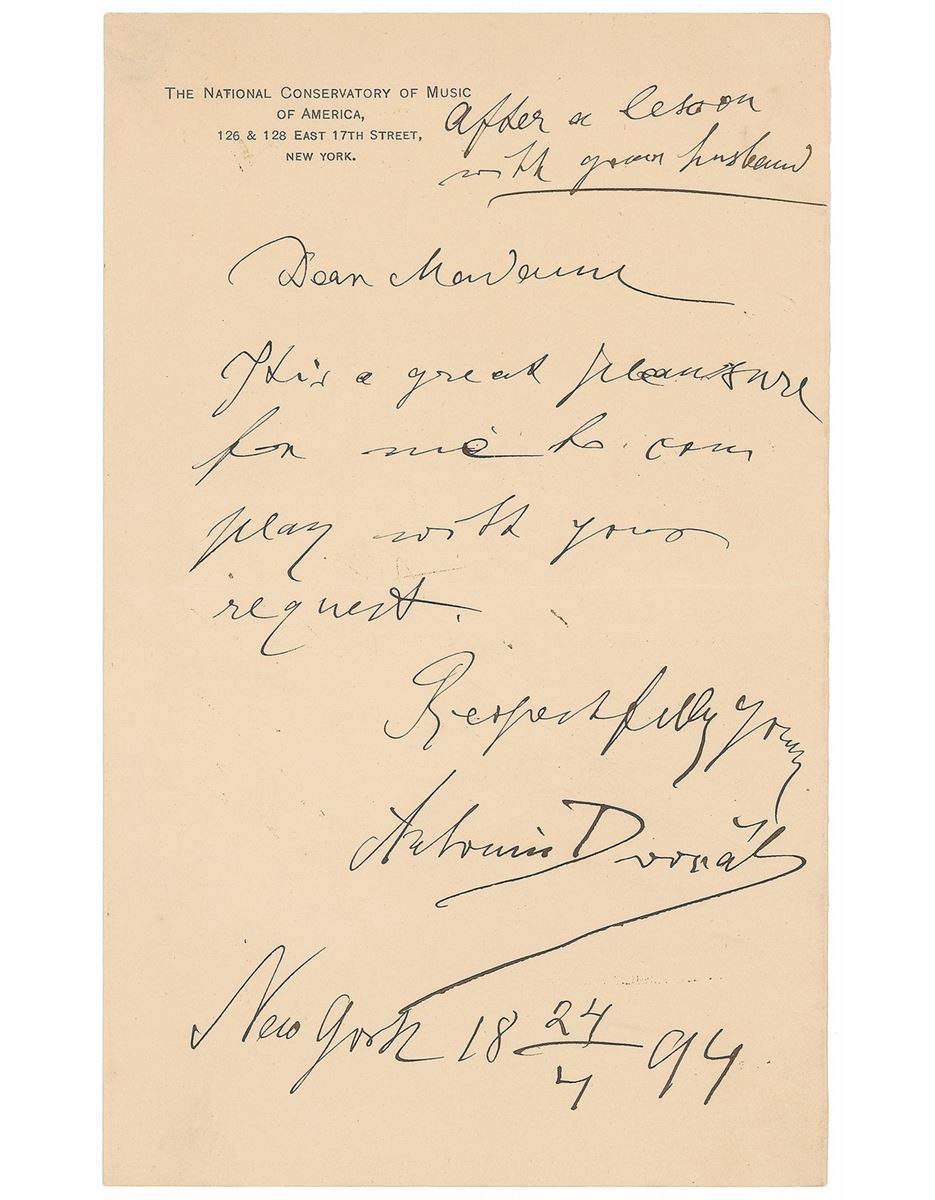 THE NATIONAL CONSERVATORY OF MUSIC
OF AMERICA,
126 & 128 EAST 17TH STREET,
NEW YORK.
After a lesson
with your husband
Dear Madame
It is a great pleansure
for me to com
play with your
request.
Respectfully yours
Antonín Dvořák
New York 18 24/4 94